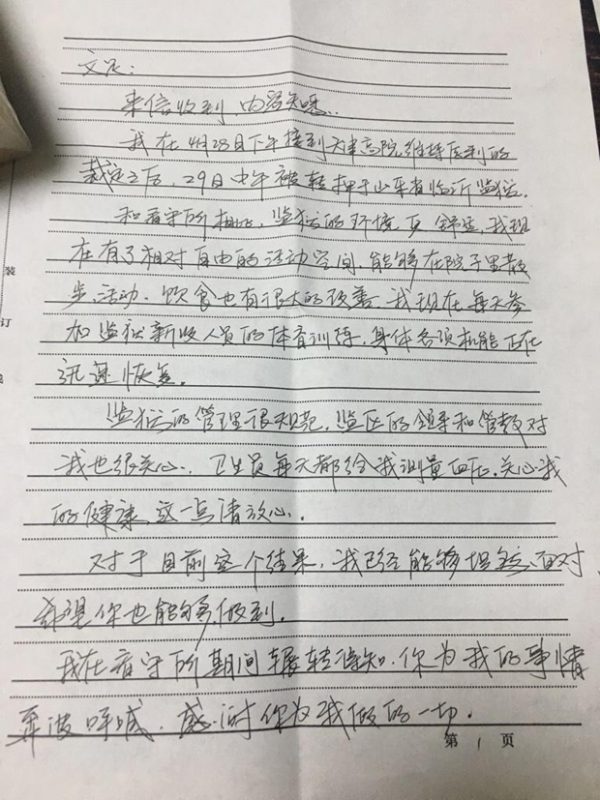 文足：
来信收到，内容知悉。
我在4月28日下午接到天津高院维持原判的
裁定之后，29日中午被转押于山东省临沂监狱。
和看守所相比，监狱的环境更舒适，我现
在有了相对自由的活动空间，能够在院子里散
步、活动、饮食也有很大的改善。我现在每天参
加监狱新收人员的体育训练，身体各项机能正在
迅速恢复。
监狱的管理很规范，监区的领导和管教对
我也很关心。卫生员每天都给我测量血压，关心我
的健康，这一点请放心。
对于目前这个结果，我已经能够坦然面对
希望你也能够做到。
我在看守所期间辗转得知，你为我的事情
奔波呼喊，感谢你为我做的一切。
第 1 页
装
订